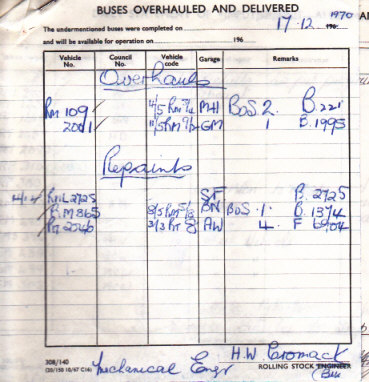 BUSES OVERHAULED AND DELIVERED
The undermentioned buses were completed on 17·12 1970 196
and will be available for operation on 196
Vehicle No. Council No. Vehicle code Garage Remarks
Overhauls
RM 109 4/5 RM 5/4 MH BOS 2. B. 221
2001 GM 1 B. 1995
Repaints
RML 2725 SF B. 2725
RM 865 BN BOS 1. B. 1374
RT 3/3 RT 8 AW 4. F
308/140
(20/150 10/67 C16)
Mechanical Engr
H.W Cromack
ROLLING STOCK ENGINEER